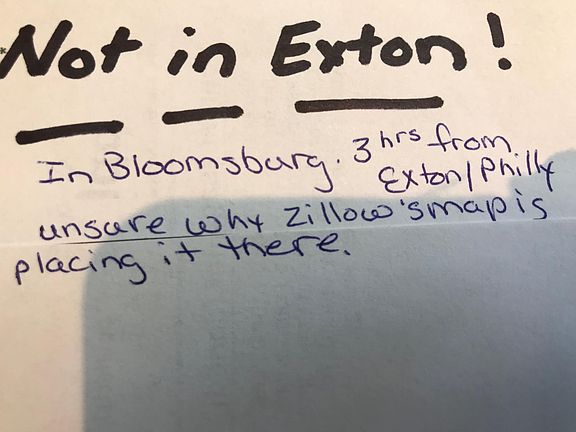 Not in Exton!
In Bloomsburg. 3 hrs from
Exton/Philly
unsure why zillow's map is
placing it there.